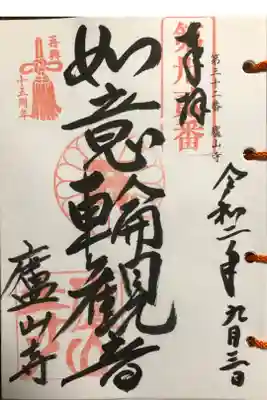 奉拝
第三十二番 廬山寺
令和二年九月三日
如意輪觀音
廬山寺
再興
十五周年